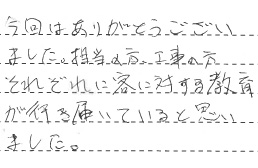 今回はありがとうござい
ました。担当の方、工事の方
それぞれに客に対する教育
が行き届いていると思い
ました。